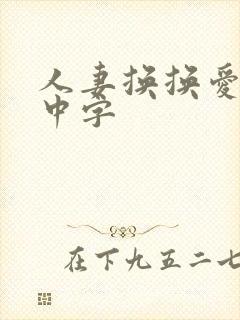 人妻换换爱
中字
在下九五二七